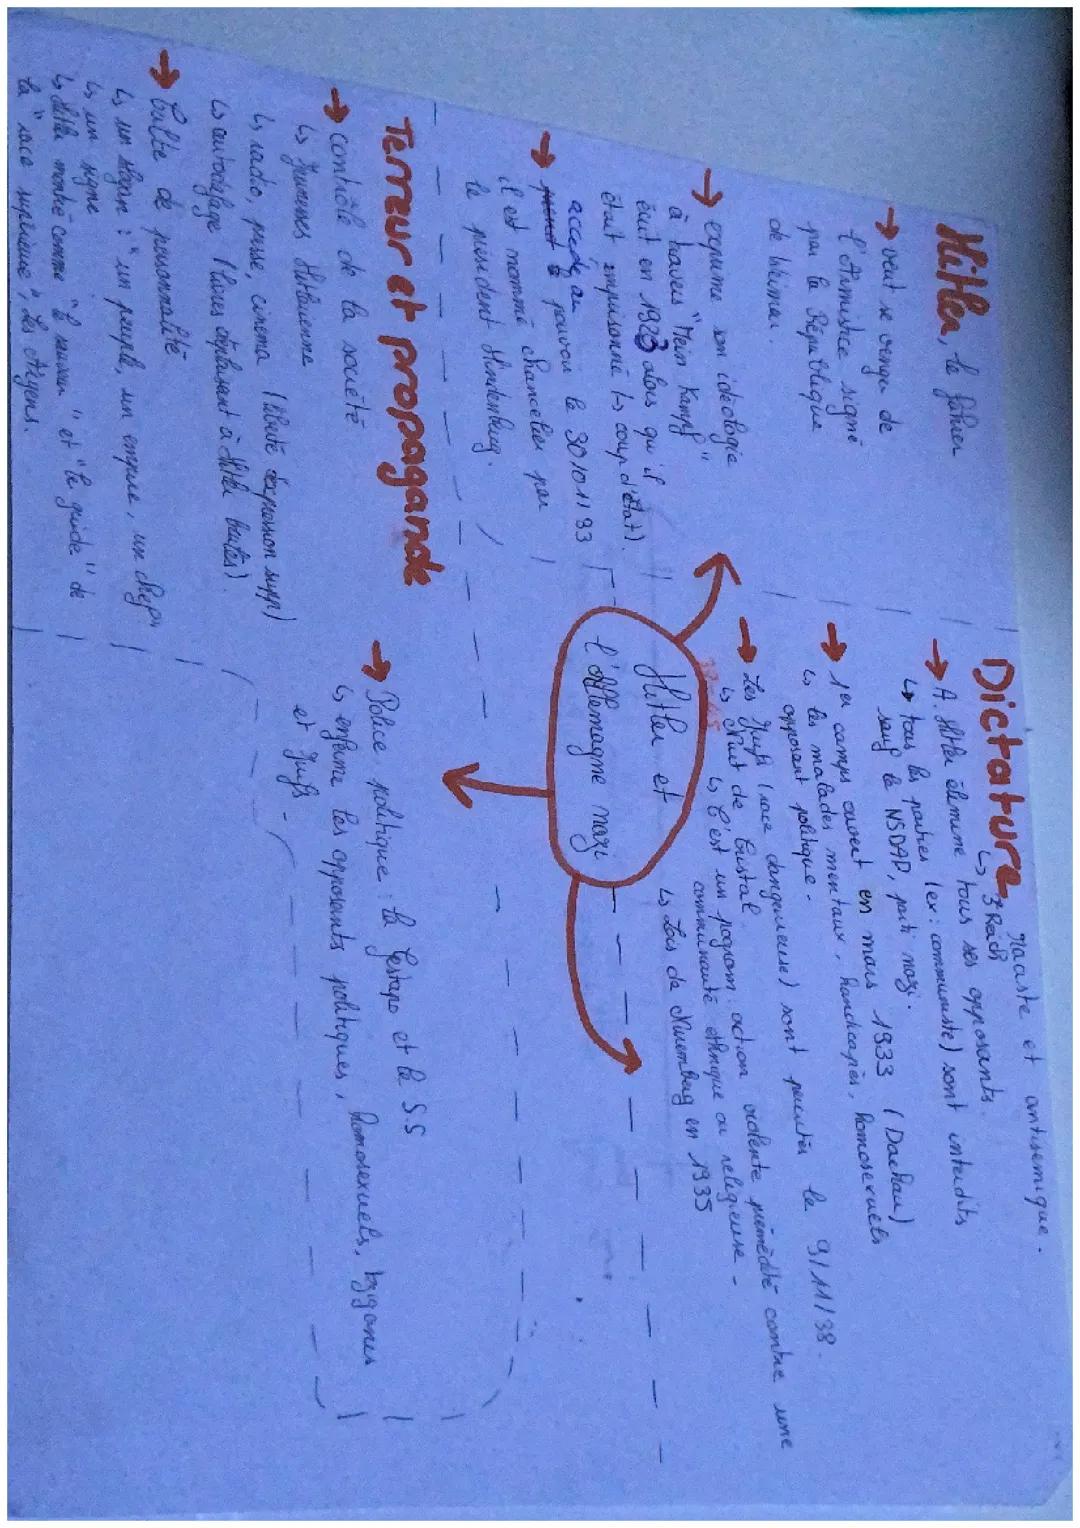 Hitler, le führer
→ veut se venger de
l'Armistice signé
par la République
de Weimar.
→ exprime son idéologie
à travers "Mein Kampf"
écrit en 1923 alors qu'il
était emprisonné (↳ coup d'état).
→ accède au pouvoir le 30/01/33
il est nommé chancelier par
le président Hindenburg.
Dictature raciste et antisémique.
↳ 3 Reich
→ A. Hitler élimine tous ses opposants.
↳ tous les parties (ex: communiste) sont interdits
sauf le NSDAP, parti nazi.
→ 1er camps ouvert en mars 1933 (Dachau)
↳ les malades mentaux, handicapés, homosexuels
opposant politique.
→ Les Juifs (race dangereuse) sont persécutés le 9/11/38.
↳ Nuit de Cristal.
↳ C'est un pogrom: action violente prémédité contre une
communauté ethnique ou religieuse.
↳ Lois de Nuremberg en 1935
Hitler et
l'Allemagne nazi
Terreur et propagande
→ contrôle de la société
↳ Jeunesses Hitlerienne
↳ radio, presse, cinema (liberté d'expression supp)
↳ autodafage (livres déplaisant à Hitler brulés).
→ Culte de personnalité
↳ un slogan: "un peuple, un empire, un chef"
↳ un signe
↳ Hitler montré comme "le sauveur" et "le guide" de
la "race supérieure", les Aryens.
→ Police politique: la Gestapo et le S.S
↳ enferme les opposants politiques, homosexuels, tziganes
et Juifs.